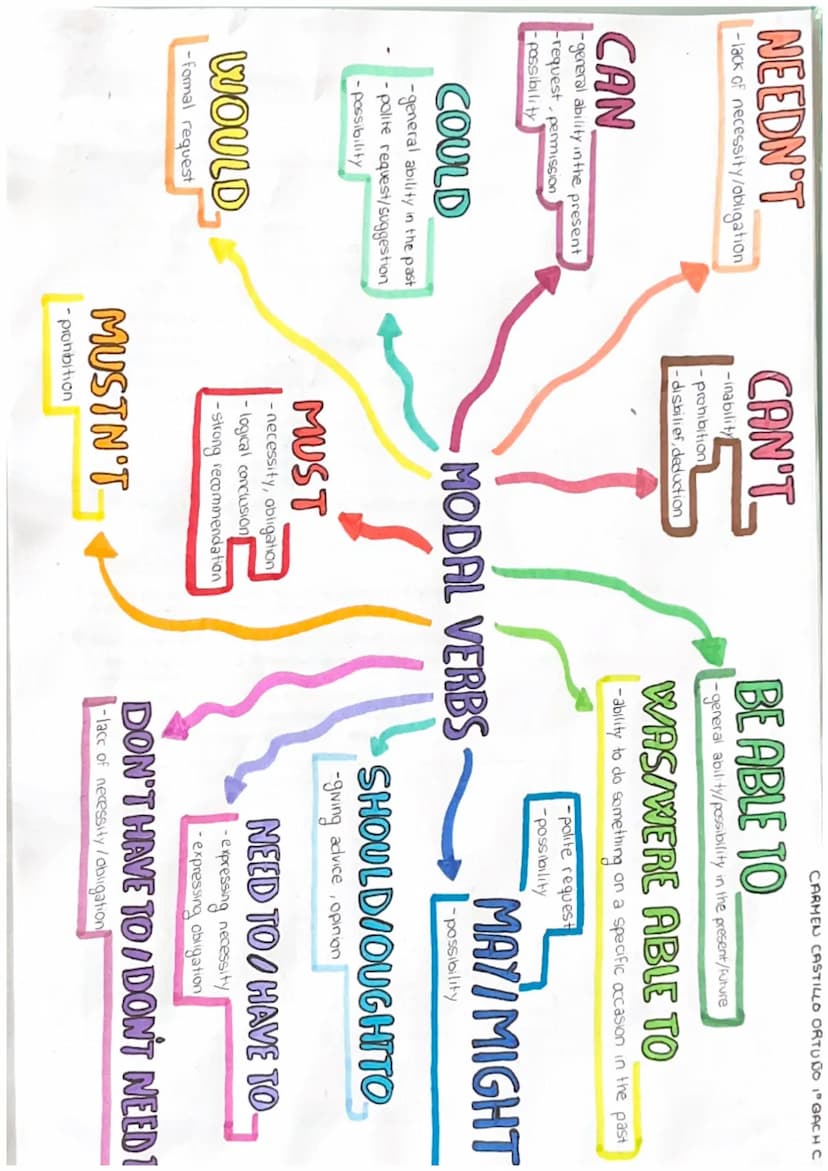 CARMEN CASTILLO ORTUÑO 1º BACH C
NEEDN'T
- lack of necessity/obligation
CAN
- general ability in the present
- request, permission
- possibility
COULD
- general ability in the past
- polite request/suggestion
- possibility
WOULD
- formal request
CAN'T
- inability
- prohibition
- disbilief, deduction
MUST
- necessity, obligation
- logical conclusion
- strong recommendation
MUSTN'T
- prohibition
MODAL VERBS
BE ABLE TO
- general ability/possibility in the present/future
WAS/WERE ABLE TO
- ability to do something on a specific occasion in the past
MAY/MIGHT
- polite request
- possibility
- possibility
SHOULD/OUGHT TO
- giving advice, opinion
NEED TO/HAVE TO
- expressing necessity
- expressing obligation
DON'T HAVE TO/DON'T NEED
- lacc of necessity/obligation